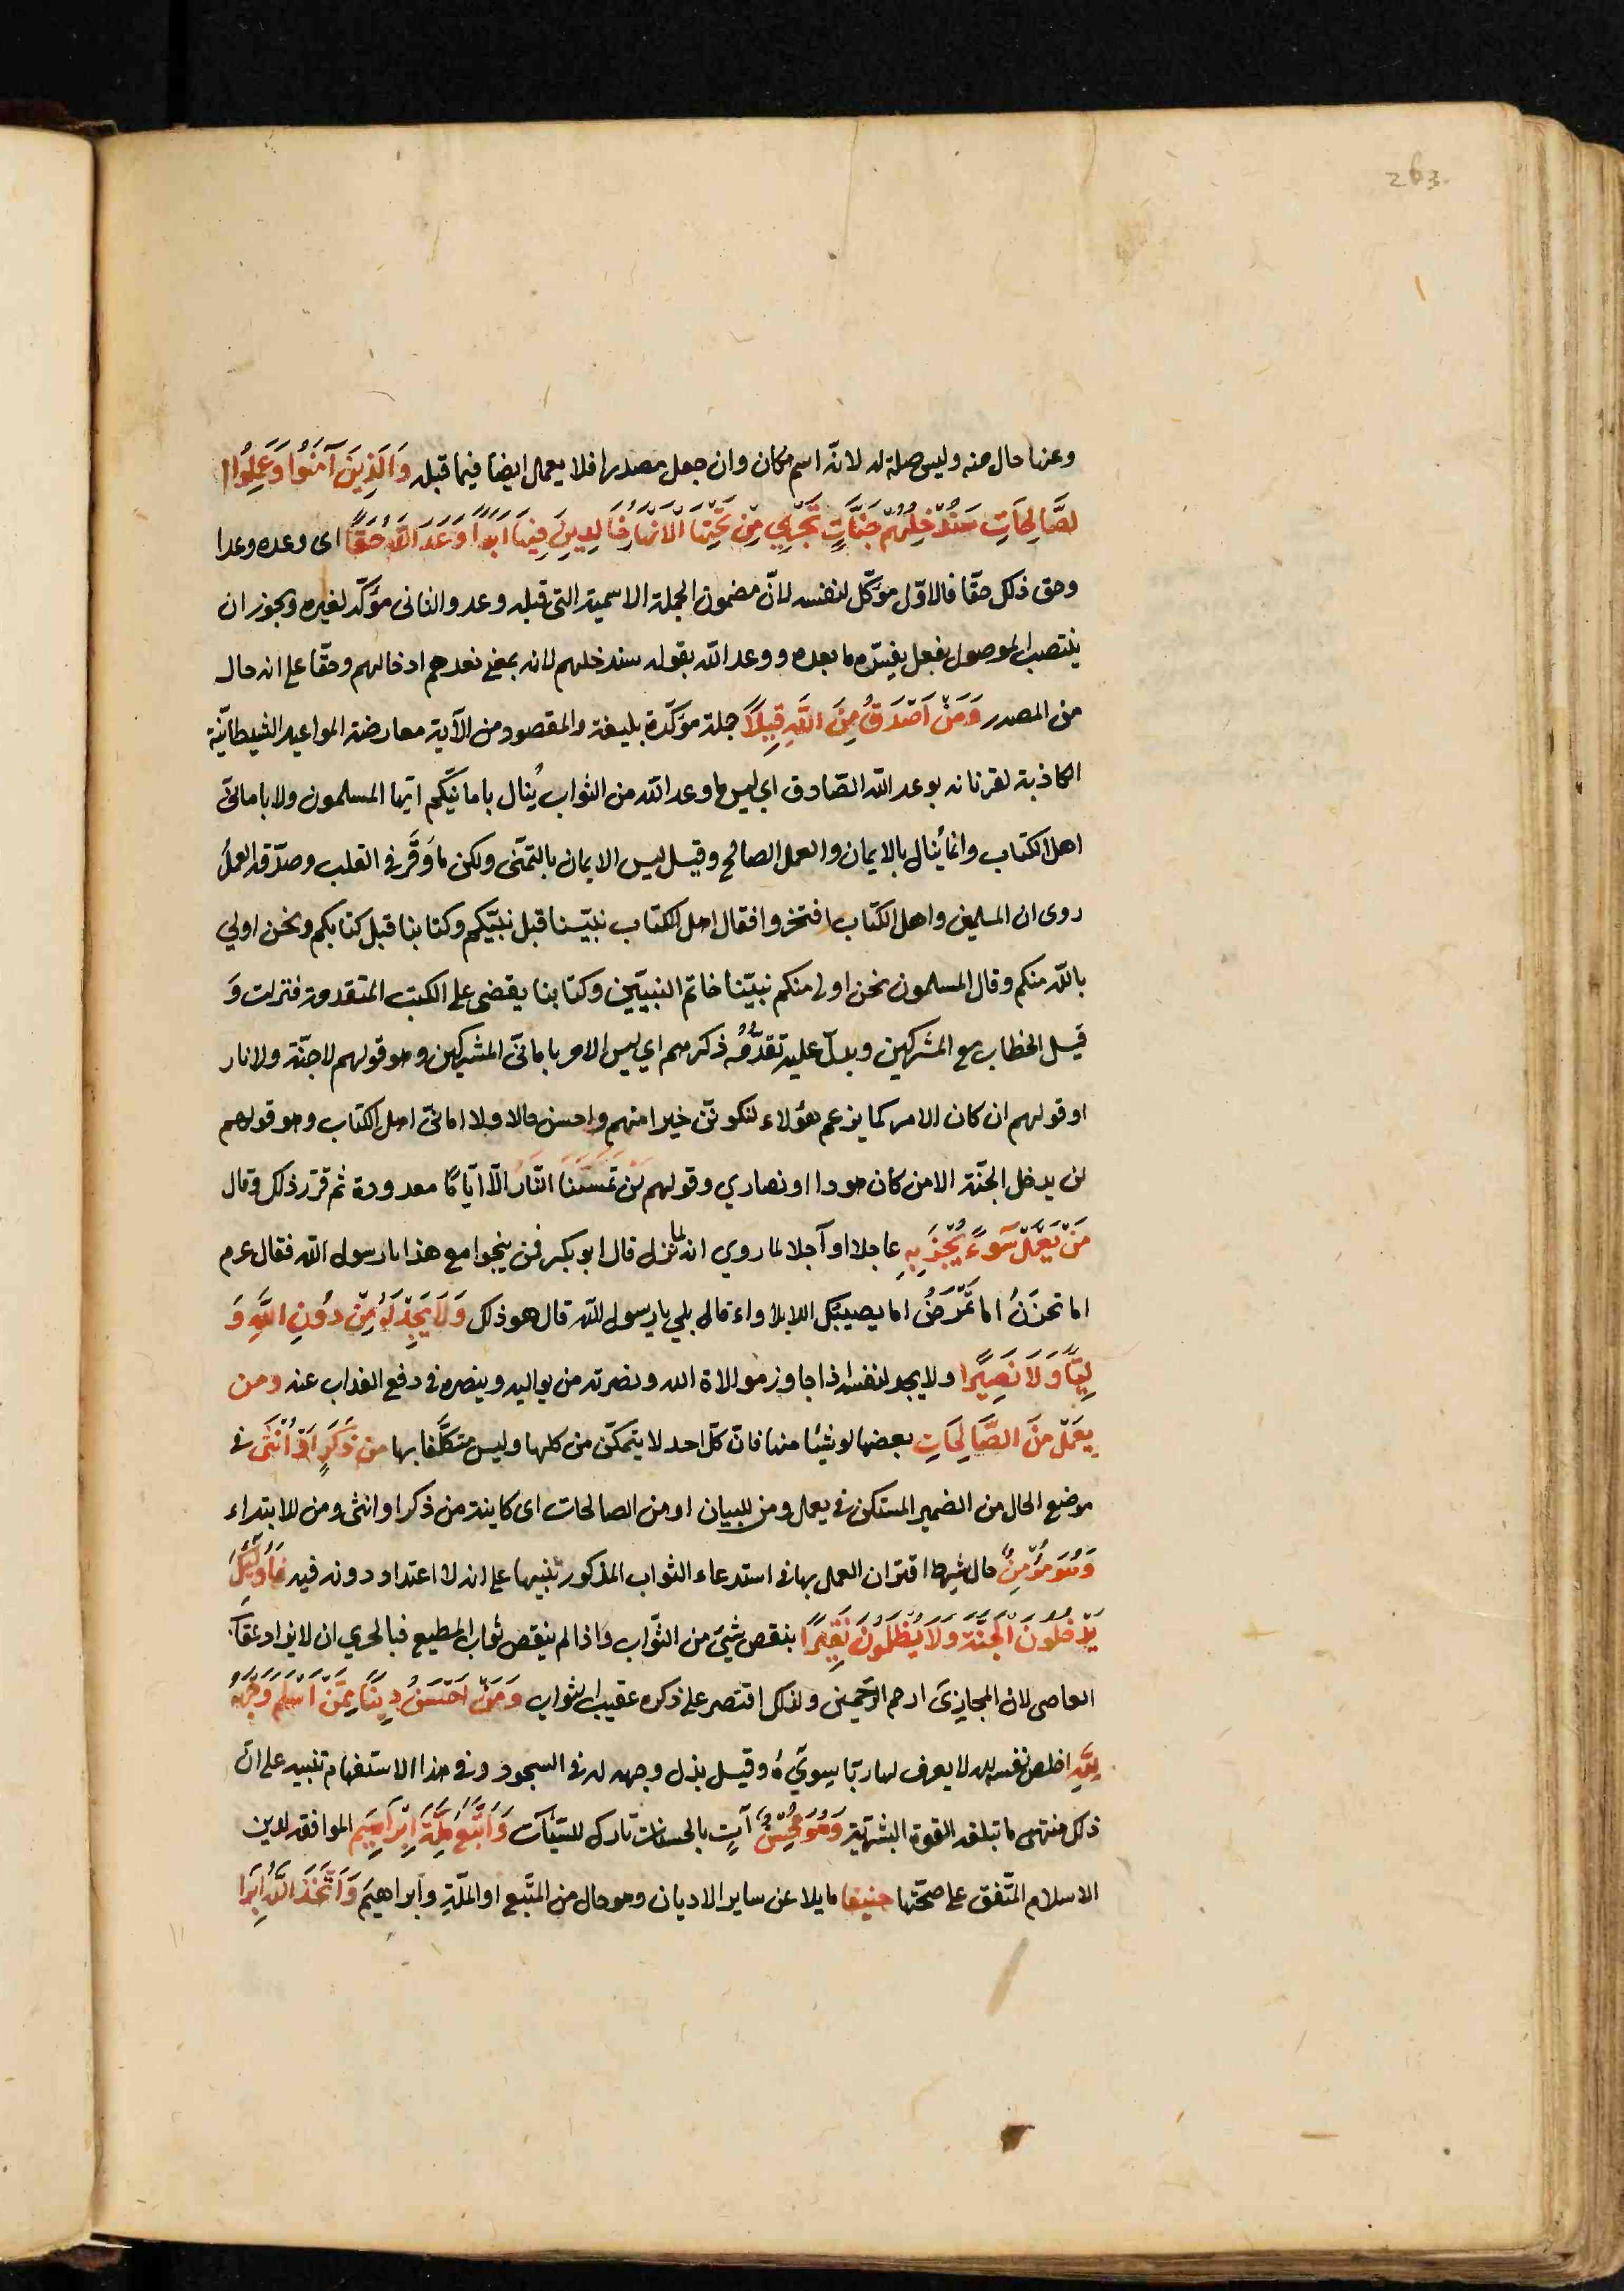 263
وعنها حال منه وليس صلة له لانّه اسم مكان وان جعل مصدرا فلا يعمل ايضا فيما قبله وَالَّذِينَ آمَنُوا وَعَمِلُوا ا
لصَّالِحَاتِ سَنُدْخِلُهُمْ جَنَّاتٍ تَجْرِي مِنْ تَحْتِهَا الْاَنْهَارُ خَالِدِينَ فِيهَا اَبَدًا وَعْدَ اللّٰهِ حَقًّا اى وعده وعدا
وحق ذلك حقّا فالاوّل مؤكّد لنفسه لانّ مضمون الجملة الاسمية التى قبله وعد والثانى مؤكّد لغيره ويجوز ان
ينتصب الموصول بفعل يفسّره ما بعده ووعد اللّه بقوله سندخلهم لانه بمعنى نعدهم ادخالهم وحقّا على انه حال
من المصدر وَمَنْ اَصْدَقُ مِنَ اللَّهِ قِيلًا جملة مؤكّدة بليغة والمقصود من الآية معارضة المواعيد الشيطانيّة
الكاذبة لقرنائه بوعد اللّه الصّادق اي ليس ما وعد اللّه من الثواب يُنال بامانيّكم ايّها المسلمون ولا بامانىّ
اهل الكتاب وانما يُنال بالايمان والعمل الصالح وقيل ليس الايمان بالتمنّى ولكن ما وَقَرَ فى القلب وصدّقه العملُ
روى ان المسلمين واهل الكتاب افتخروا فقال اهل الكتاب نبيّنا قبل نبيّكم وكتابنا قبل كتابكم ونحن اولي
باللّه منكم وقال المسلمون نحن اولى منكم نبيّنا خاتم النبيّين وكتابنا يقضى على الكتب المتقدمة فنزلت وَ
قيل الخطاب مع المشركين ويدلّ عليه تقدُّمُ ذكرهم اي ليس الامر بامانىّ المشركين وهو قولهم لا جنّة ولا نار
او قولهم ان كان الامر كما يزعم هؤلاء لنكوننّ خيرا منهم واحسن حالا ولا امانىّ اهل الكتاب وهو قولهم
لن يدخل الجنّة الا من كان هودا او نصاري وقولهم لَنْ تَمَسَّنَا النَّارُ الّا ايّامًا معدودة ثم قرّر ذلك وقال
مَنْ يَعْمَلْ سُوءًا يُجْزَ بِهِ عاجلا او آجلا لما روي انه لما نزل قال ابو بكر فمن ينجوا مع هذا يا رسول اللّه فقال عرم
اما تحزنُ اما تَمْرَضُ اما يصيبك اللابلاواء قال بلي يا رسول اللّه قال هو ذلك وَلَا يَجِدْ لَهُ مِنْ دُونِ اللَّهِ وَ
لِيًّا وَلَا نَصِيرًا ولا يجد لنفسه اذا جاوز موالاة الله ونصرته من يواليه وينصره فى دفع العذاب عنه ومن
يَعْمَلْ مِنَ الصَّالِحَاتِ بعضها او شيئا منها فانّ كلّ احد لا يتمكّن من كلها وليس متكلّفا بها مِنْ ذَكَرٍ اَوْ اُنْثَى فى
موضع الحال من الضمير المستكن فى يعمل ومن للبيان او من الصالحات اى كاينة من ذكر او انثى ومن للابتداء
وَهُوَ مُؤْمِنٌ حال شرط اقتران العمل بها فى استدعاء الثواب المذكور تنبيها على انه لا اعتداد دونه فيه فَاُولٰئِكَ
يَدْخُلُونَ الْجَنَّةَ وَلَا يُظْلَمُونَ نَقِيرًا بنقص شئ من الثّواب واذا لم ينقص ثواب المطيع فبالحري ان لا يزاد عقاب
العاصى لان المجازِىَ ارحم الرّاحمين ولذلك اقتصر على ذكره عقيب الثواب وَمَنْ اَحْسَنُ دِينًا مِمَّنْ اَسْلَمَ وَجْهَهُ
لِلَّهِ اخلص نفسه لله لا يعرف لها ربّا سِويٰهُ وقيل بذل وجهه له فى السجود وفى هذا الاستفهام تنبيه على انّ
ذلك منتهى ما تبلغه القوة البشريّة وَهُوَ مُحْسِنٌ آتٍ بالحسنات تارك للسيّآت وَاتَّبَعَ مِلَّةَ اِبْرَاهِيمَ الموافقة لدين
الاسلام المتّفق على صحّتها حنيفا مايلا عن ساير الاديان وهو حال من المتّبع او الملّة وابراهيم وَاتَّخَذَ اللَّهُ اِبْرَا